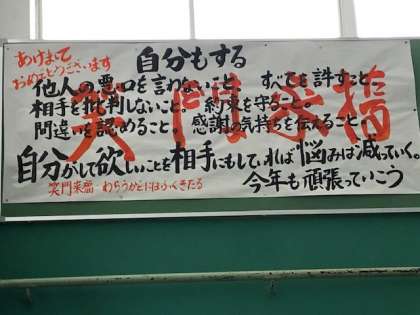 あけまして
おめでとうございます
自分もする
他人の悪口を言わないこと、すべてを許すこと
相手を批判しないこと。約束を守ること。
間違いを認めること。感謝の気持ちを伝えること。
笑門来福
自分がして欲しいことを相手にもしていれば悩みは減っていく。
笑門来福 わらうかどにはふくきたる
今年も頑張っていこう